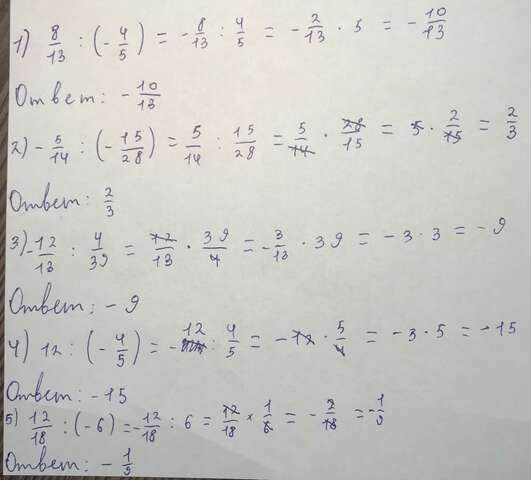 1) 8/13 : (-4/5) = -8/13 : 4/5 = -2/13 · 5 = -10/13
Ответ: -10/13
2) -5/14 : (-15/28) = 5/14 : 15/28 = 5/14 · 28/15 = 5 · 2/15 = 2/3
Ответ: 2/3
3) -12/13 : 4/39 = 12/13 · 39/4 = -3/13 · 39 = -3 · 3 = -9
Ответ: -9
4) 12 : (-4/5) = -12 : 4/5 = -12 · 5/4 = -3 · 5 = -15
Ответ: -15
5) 12/18 : (-6) = -12/18 : 6 = 12/18 × 1/6 = -2/18 = -1/9
Ответ: -1/9